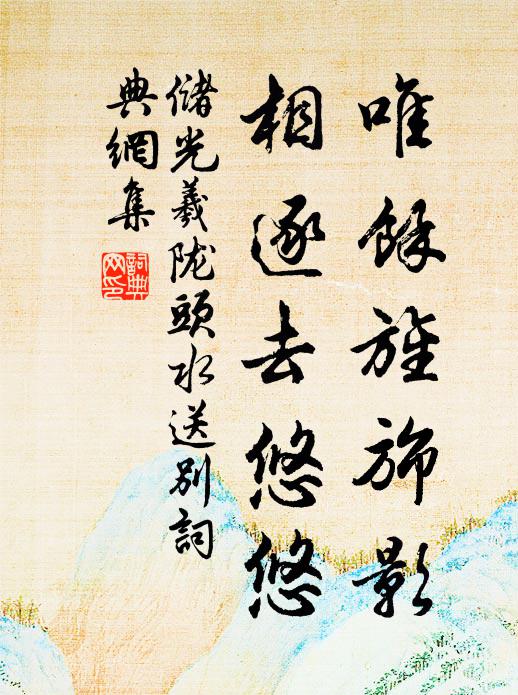 唯餘旌旆影
相逐去悠悠
儲光羲陇頭水送別詞
典網集
詞典
网印